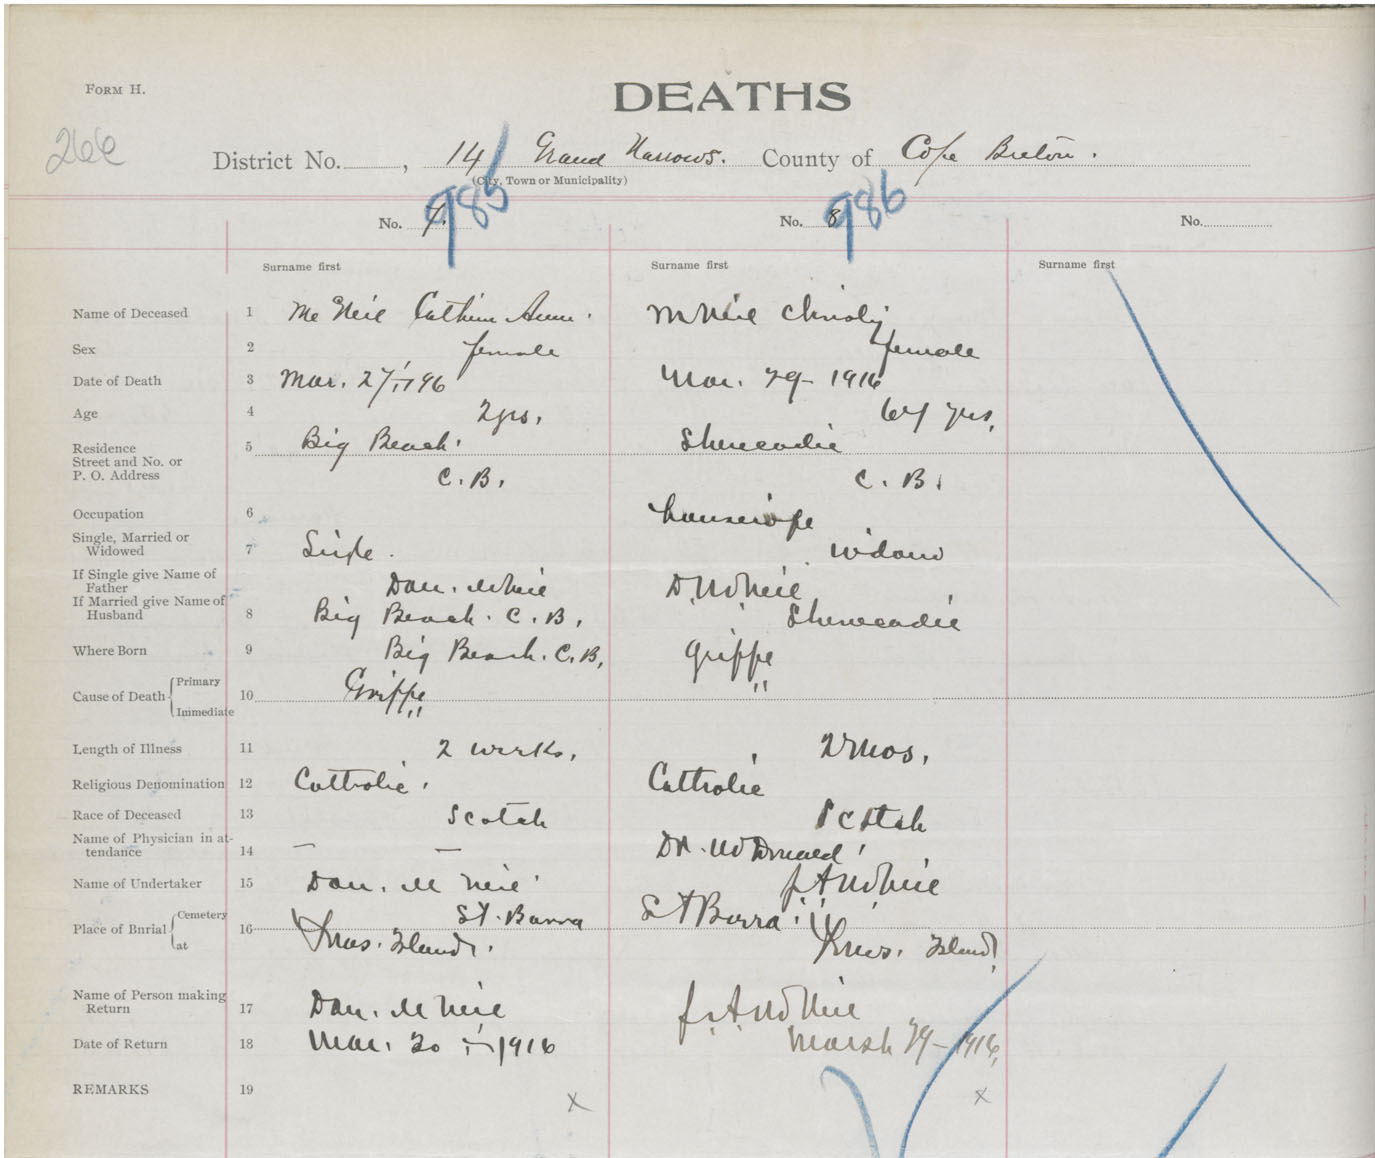 FORM H.
DEATHS
266
District No. , 14 Grand Narrows. County of Cape Breton.
(City, Town or Municipality)
No. 7. 985 No. 8 986 No.
Surname first Surname first Surname first
Name of Deceased 1 Mc Neil Cathrine Ann. McNeil Christy
Sex 2 female female
Date of Death 3 Mar. 27 Mar. 29- 1916
Age 4 2 yrs. 64 yrs,
Residence 5 Big Beach. Shenecadie
Street and No. or
P. O. Address C. B. C. B.
Occupation 6 housewife
Single, Married or
Widowed 7 Single. widow
If Single give Name of
Father Dan. McNeil D. McNeil
If Married give Name of
Husband 8 Big Beach. C. B. Shenecadie
Where Born 9 Big Beach. C. B,
Cause of Death Primary 10 Grippe Grippe
Immediate " "
Length of Illness 11 2 weeks. 2 mos.
Religious Denomination 12 Catholic. Catholic
Race of Deceased 13 Scotch Scotch
Name of Physician in at-
tendance 14 — — Dr. McDonald
Name of Undertaker 15 Dan. McNeil J. A. McNeil
Place of Burial Cemetery 16 St. Barra St Barra
at Xmas. Island. Xmas. Island
Name of Person making
Return 17 Dan. McNeil J. A. McNeil
Date of Return 18 Mar. 30 - 1916 Marsh 29 - 1916,
REMARKS 19 x x